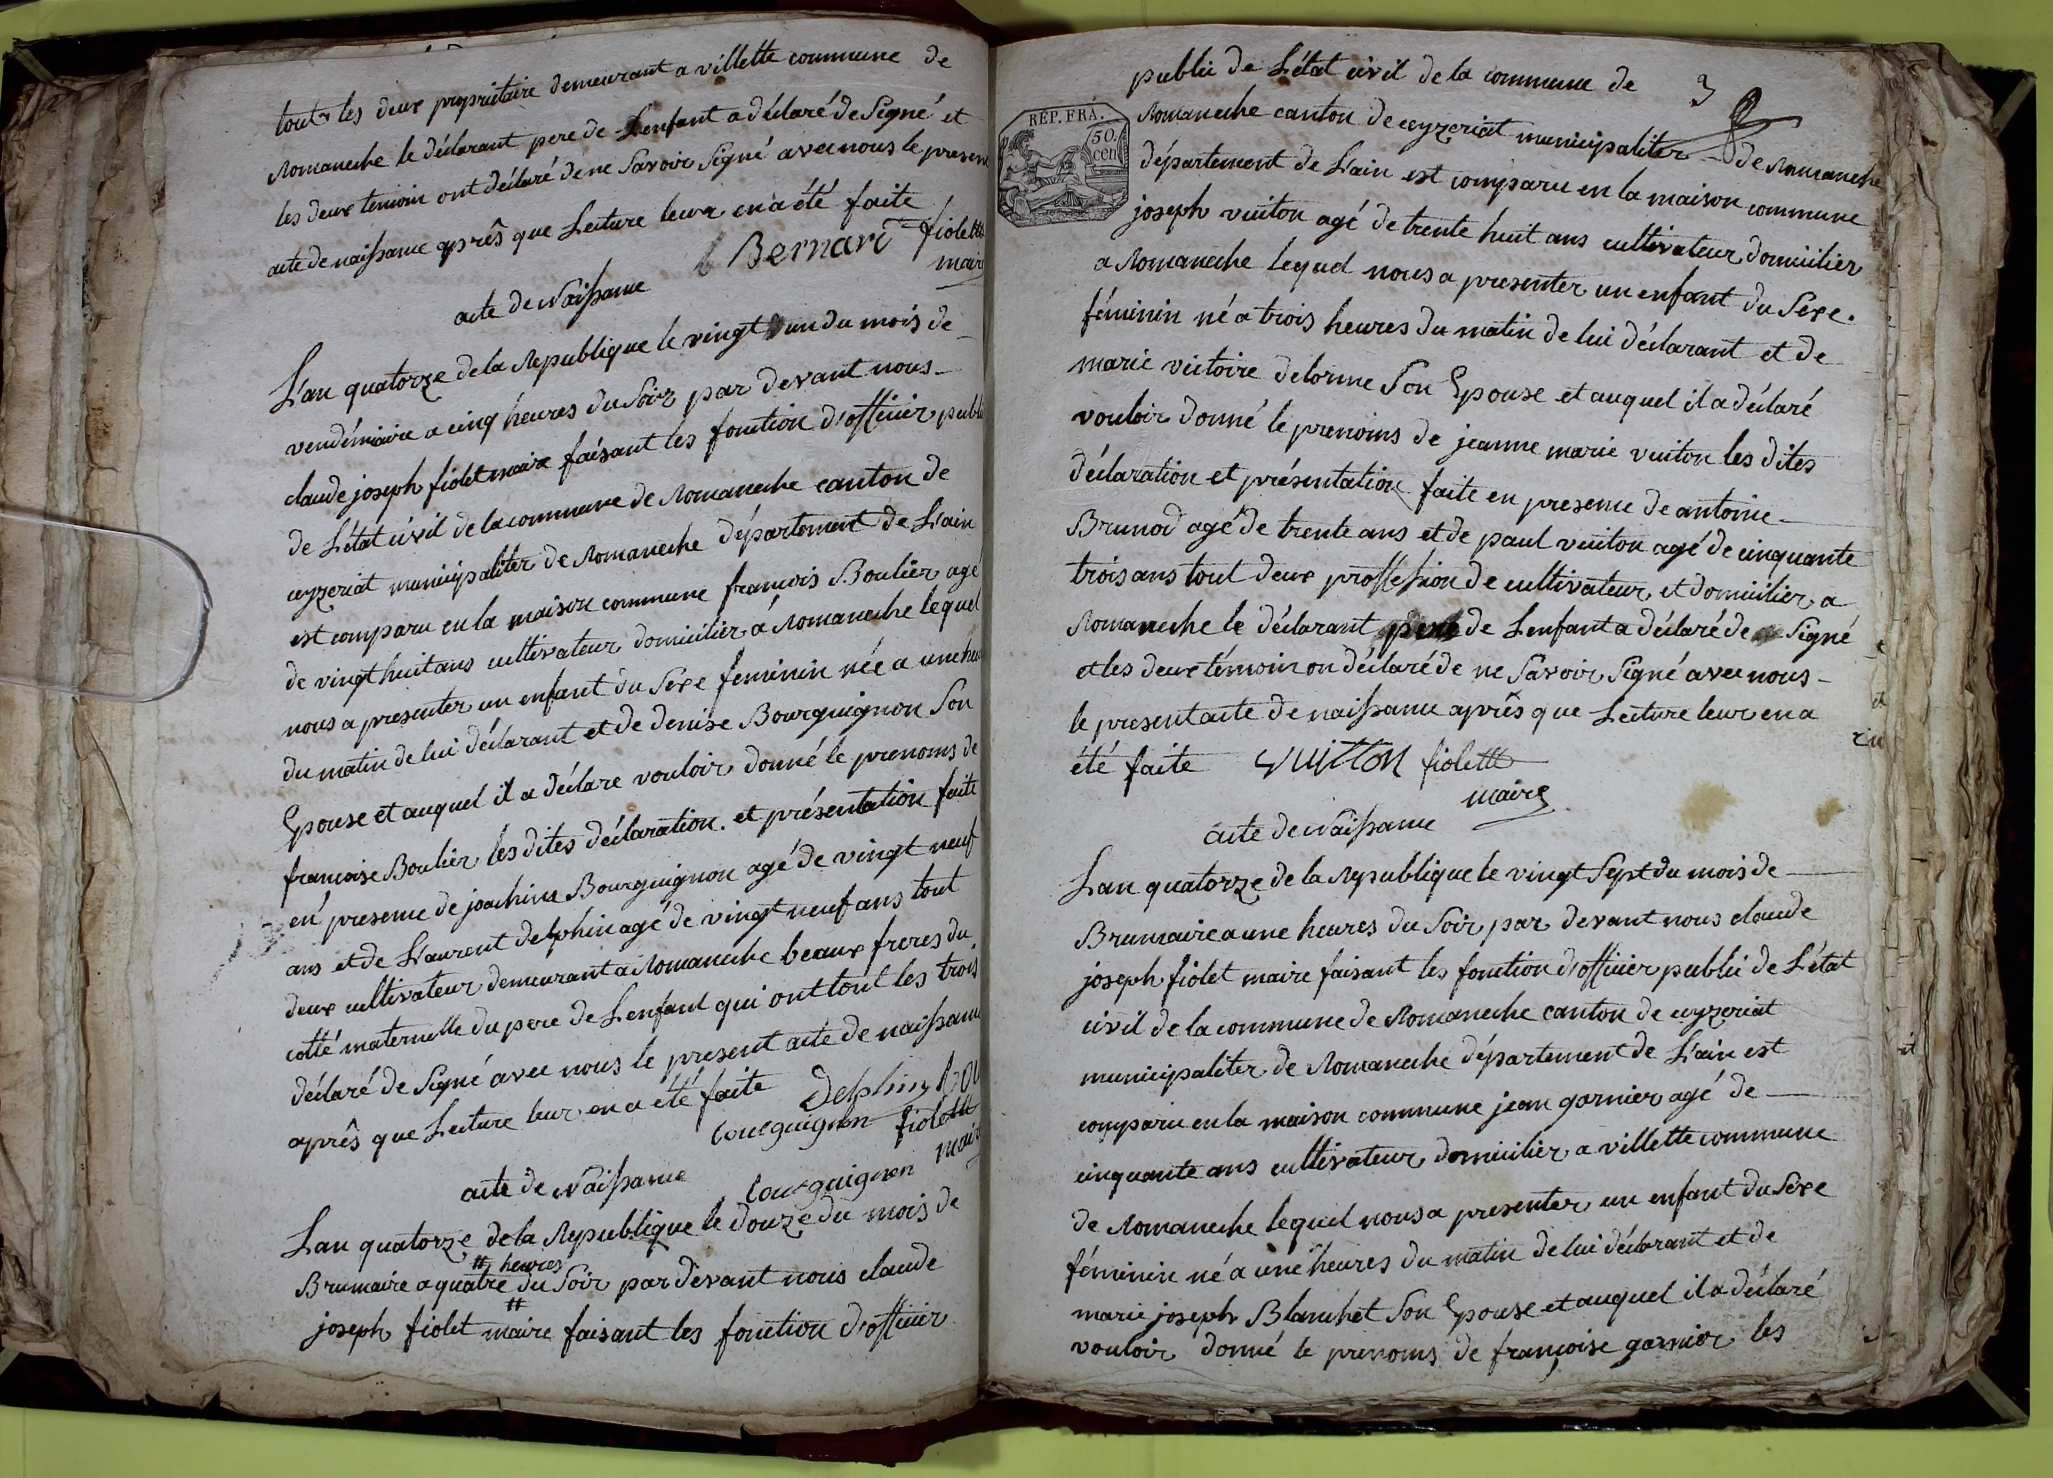 toutr les deux propriétaire demeurant a villette commune de
Romaneche le déclarant pere de Lenfant a déclaré de Signé et
les deux temoin ont déclaré de ne Savoir Signé avec nous le present
acte de naissance après que Lecture leur en a été faite
Bernard fiolette
maire
acte de Naissance
L'an quatorze de la Republique le vingt un du mois de
vendémiaire a cinq heures du Soir par devant nous
claude joseph fiolet maire faisant les fonction d'officier publi
de L'état civil de la commune de Romaneche canton de
ceyzeriat municipaliter de Romaneche département de L'ain
est comparu en la maison commune francois Boulier agé
de vingt huit ans cultivateur domicilier á Romaneche lequel
nous a presenter un enfant du Sexe feminin née a une heu
du matin de lui déclarant et de denise Bourguignon Son
Epouse et auquel il a déclare vouloir donné le prenoms de
francoise Boulier les dites déclaration. et présentation faite
en presence de joachim Bourguignon agé de vingt neuf
ans et de L'aurent delphin agé de vingt neuf ans tout
deux cultivateur demeurant a Romaneche beaux freres du
cotté maternelle du pere de Lenfant qui ont tout les trois
déclaré de Signé avec nous le present acte de naissance
après que Lecture leur en a été faite Delphin bou
bourguignon fiolette
maire
acte de Naissance bourguignon
L'an quatorze de la Republique le douze du mois de
# heures
Brumaire a quatre du Soir par devant nous claude
#
joseph fiolet maire faisant les fonction d'officier
3
publi de L'état civil de la commune de
REP. FRA.
50 cen
Romaneche canton de ceyzeriat municipaliter de Romaneche
département de L'ain est comparu en la maison commune
joseph vuiton agé de trente huit ans cultivateur domicilier
a Romaneche lequel nous a presenter un enfant du Sexe.
féminin né a trois heures du matin de lui déclarant et de
marie victoire delorme Son Epouse et auquel il a déclaré
vouloir donné le prenoms de jeanne marie vuiton les dites
déclaration et présentation faite en presence de antoine
Brunod agé de trente ans et de paul vuiton agé de cinquante
trois ans tout deux proffession de cultivateur et domicilier a
Romaneche le déclarant pere de Lenfant a déclaré de Signé
et les deux témoin on déclaré de ne Savoir Signé avec nous
le present acte de naissance après que Lecture leur en a
été faite vuitton fiolette
maire
acte de Naissance
L'an quatorze de la Republique le vingt Sept du mois de
Brumaire a une heures du Soir par devant nous claude
joseph fiolet maire faisant les fonction d'officier publi de L'état
civil de la commune de Romaneche canton de ceyzeriat
municipaliter de Romaneche département de L'ain est
comparu en la maison commune jean garnier agé de
cinquante ans cultivateur domicilier a villette commune
de Romaneche lequel nous a presenter un enfant du Sexe
féminin né a une heures du matin de lui déclarant et de
marie joseph Blanchet Son Epouse et auquel il a déclaré
vouloir donné le prenoms de françoise garnier les